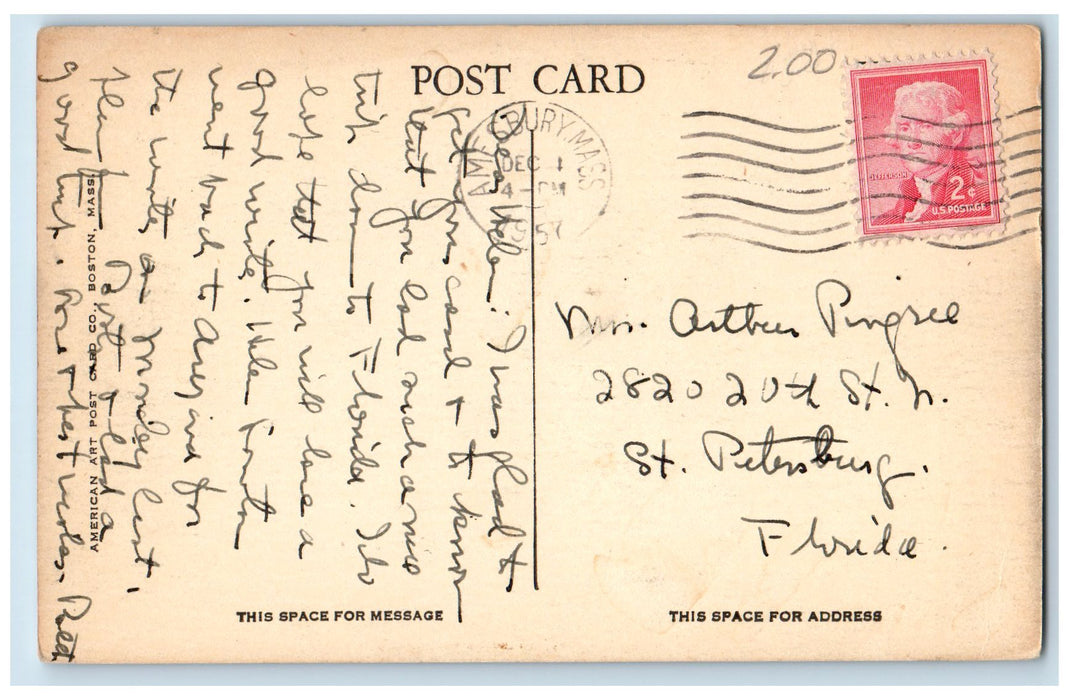 POST CARD
2.00
AMESBURY, MASS
DEC 1
4 - PM
1957
JEFFERSON
2¢
U.S. POSTAGE
Dear Helen: I was glad to
get your card & to know
that you had such a nice
trip down to Florida. I do
hope that you will have a
good winter. Helen
went back to for
the winter on Monday last.
&  had a
good time. Love & best wishes. Ruth
Mrs. Arthur Pingree
2820 20th St. N.
St. Petersburg.
Florida.
AMERICAN ART POST CARD CO., BOSTON, MASS.
THIS SPACE FOR MESSAGE
THIS SPACE FOR ADDRESS